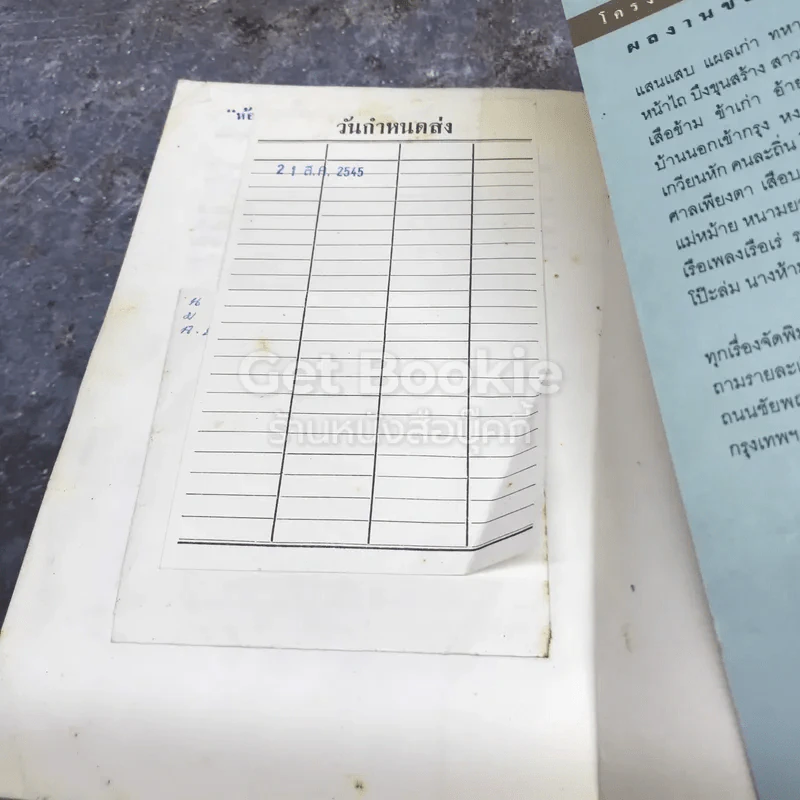 "ห้
วันกำหนดส่ง
21 ส.ค. 2545
น
ม
ค.
Get Bookie
ร้านหนังสือบุ๊คกี้
โครง
ผลงานข
แสนแสบ แผลเก่า ทหา
หน้าไถ บึงขุนสร้าง สาว
เสือข้าม ข้าเก่า อ้าย
บ้านนอกเข้ากรุง หง
เกวียนหัก คนละถิ่น
ศาลเพียงตา เสือบ
แม่หม้าย หนามย
เรือเพลงเรือเร่ ร
โป๊ะล่ม นางห้าม
ทุกเรื่องจัดพิม
ถามรายละเ
ถนนชัยพฤ
กรุงเทพฯ